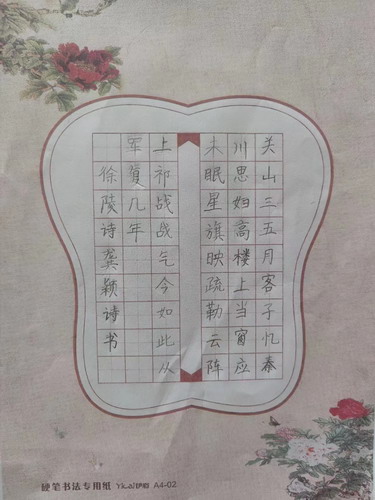 关山三五月客子忆秦
川思妇高楼上当窗应
未眠星旗映疏勒云阵
上祁战战气今如此从
军复几年
徐陵诗龚颖诗书
硬笔书法专用纸 A4-02